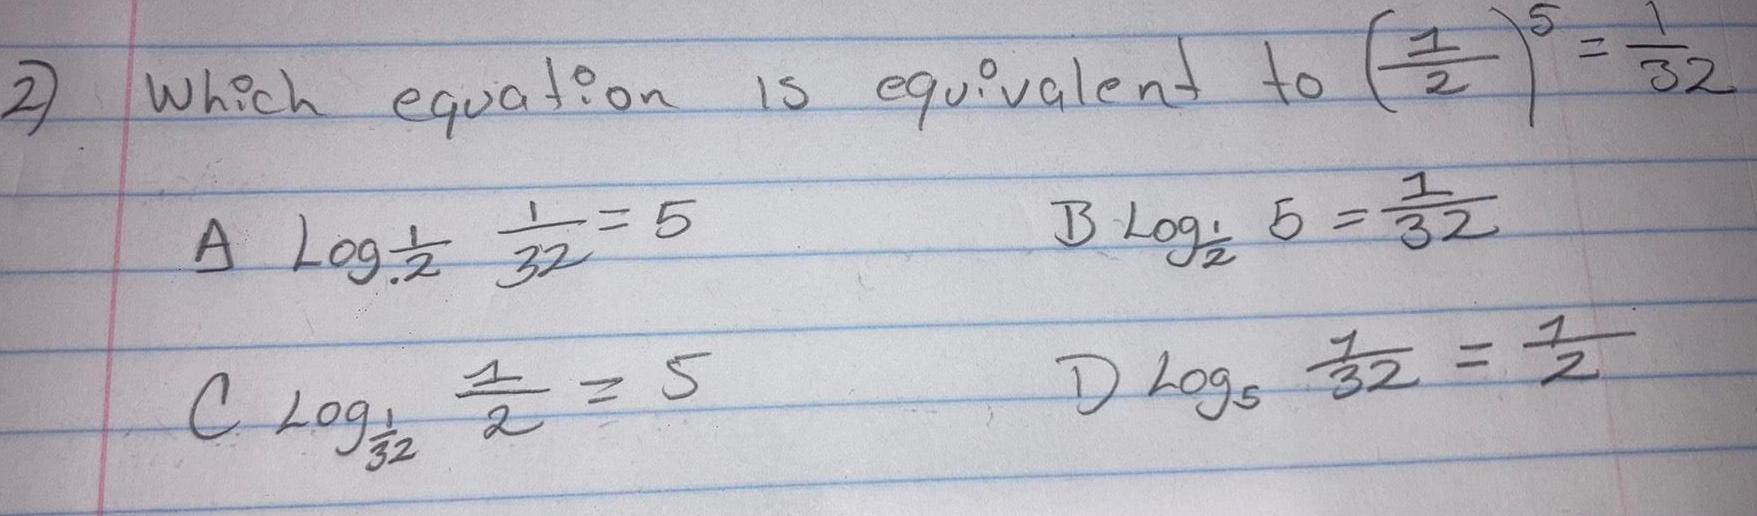 2) Which equation is equivalent to (1/2)^5 = 1/32
A Log_1/2 1/32 = 5
B Log_1/2 5 = 1/32
C Log_1/32 1/2 = 5
D Log_5 1/32 = 1/2